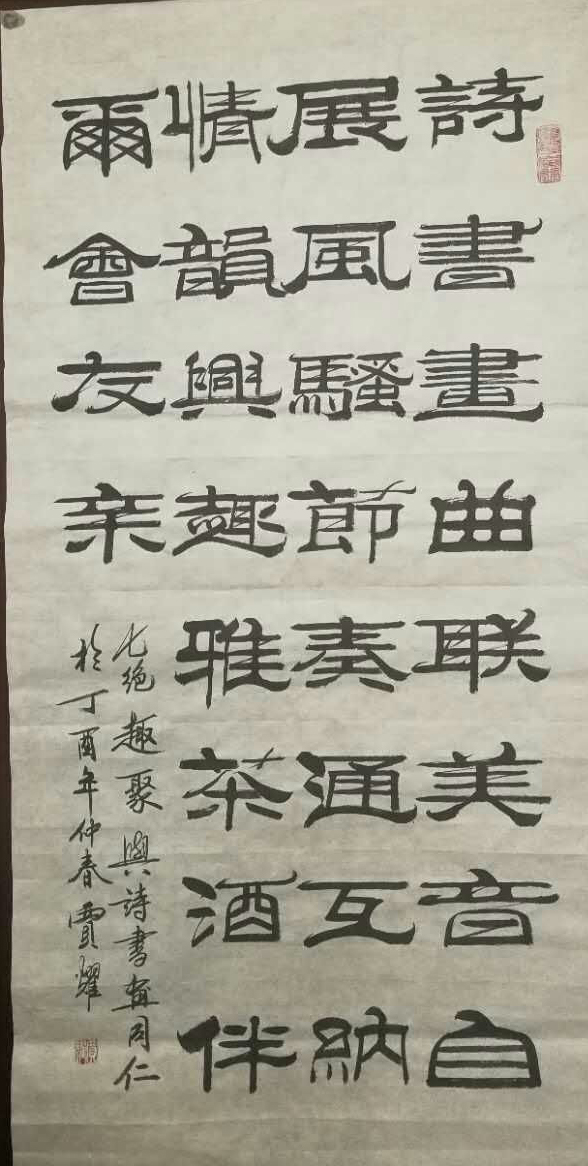 詩書畫曲联美音自
展風騷節奏通互納
情韻興趣雅茶酒伴
爾會友亲
七绝趣聚與詩書畫同仁
於丁酉年仲春賈耀